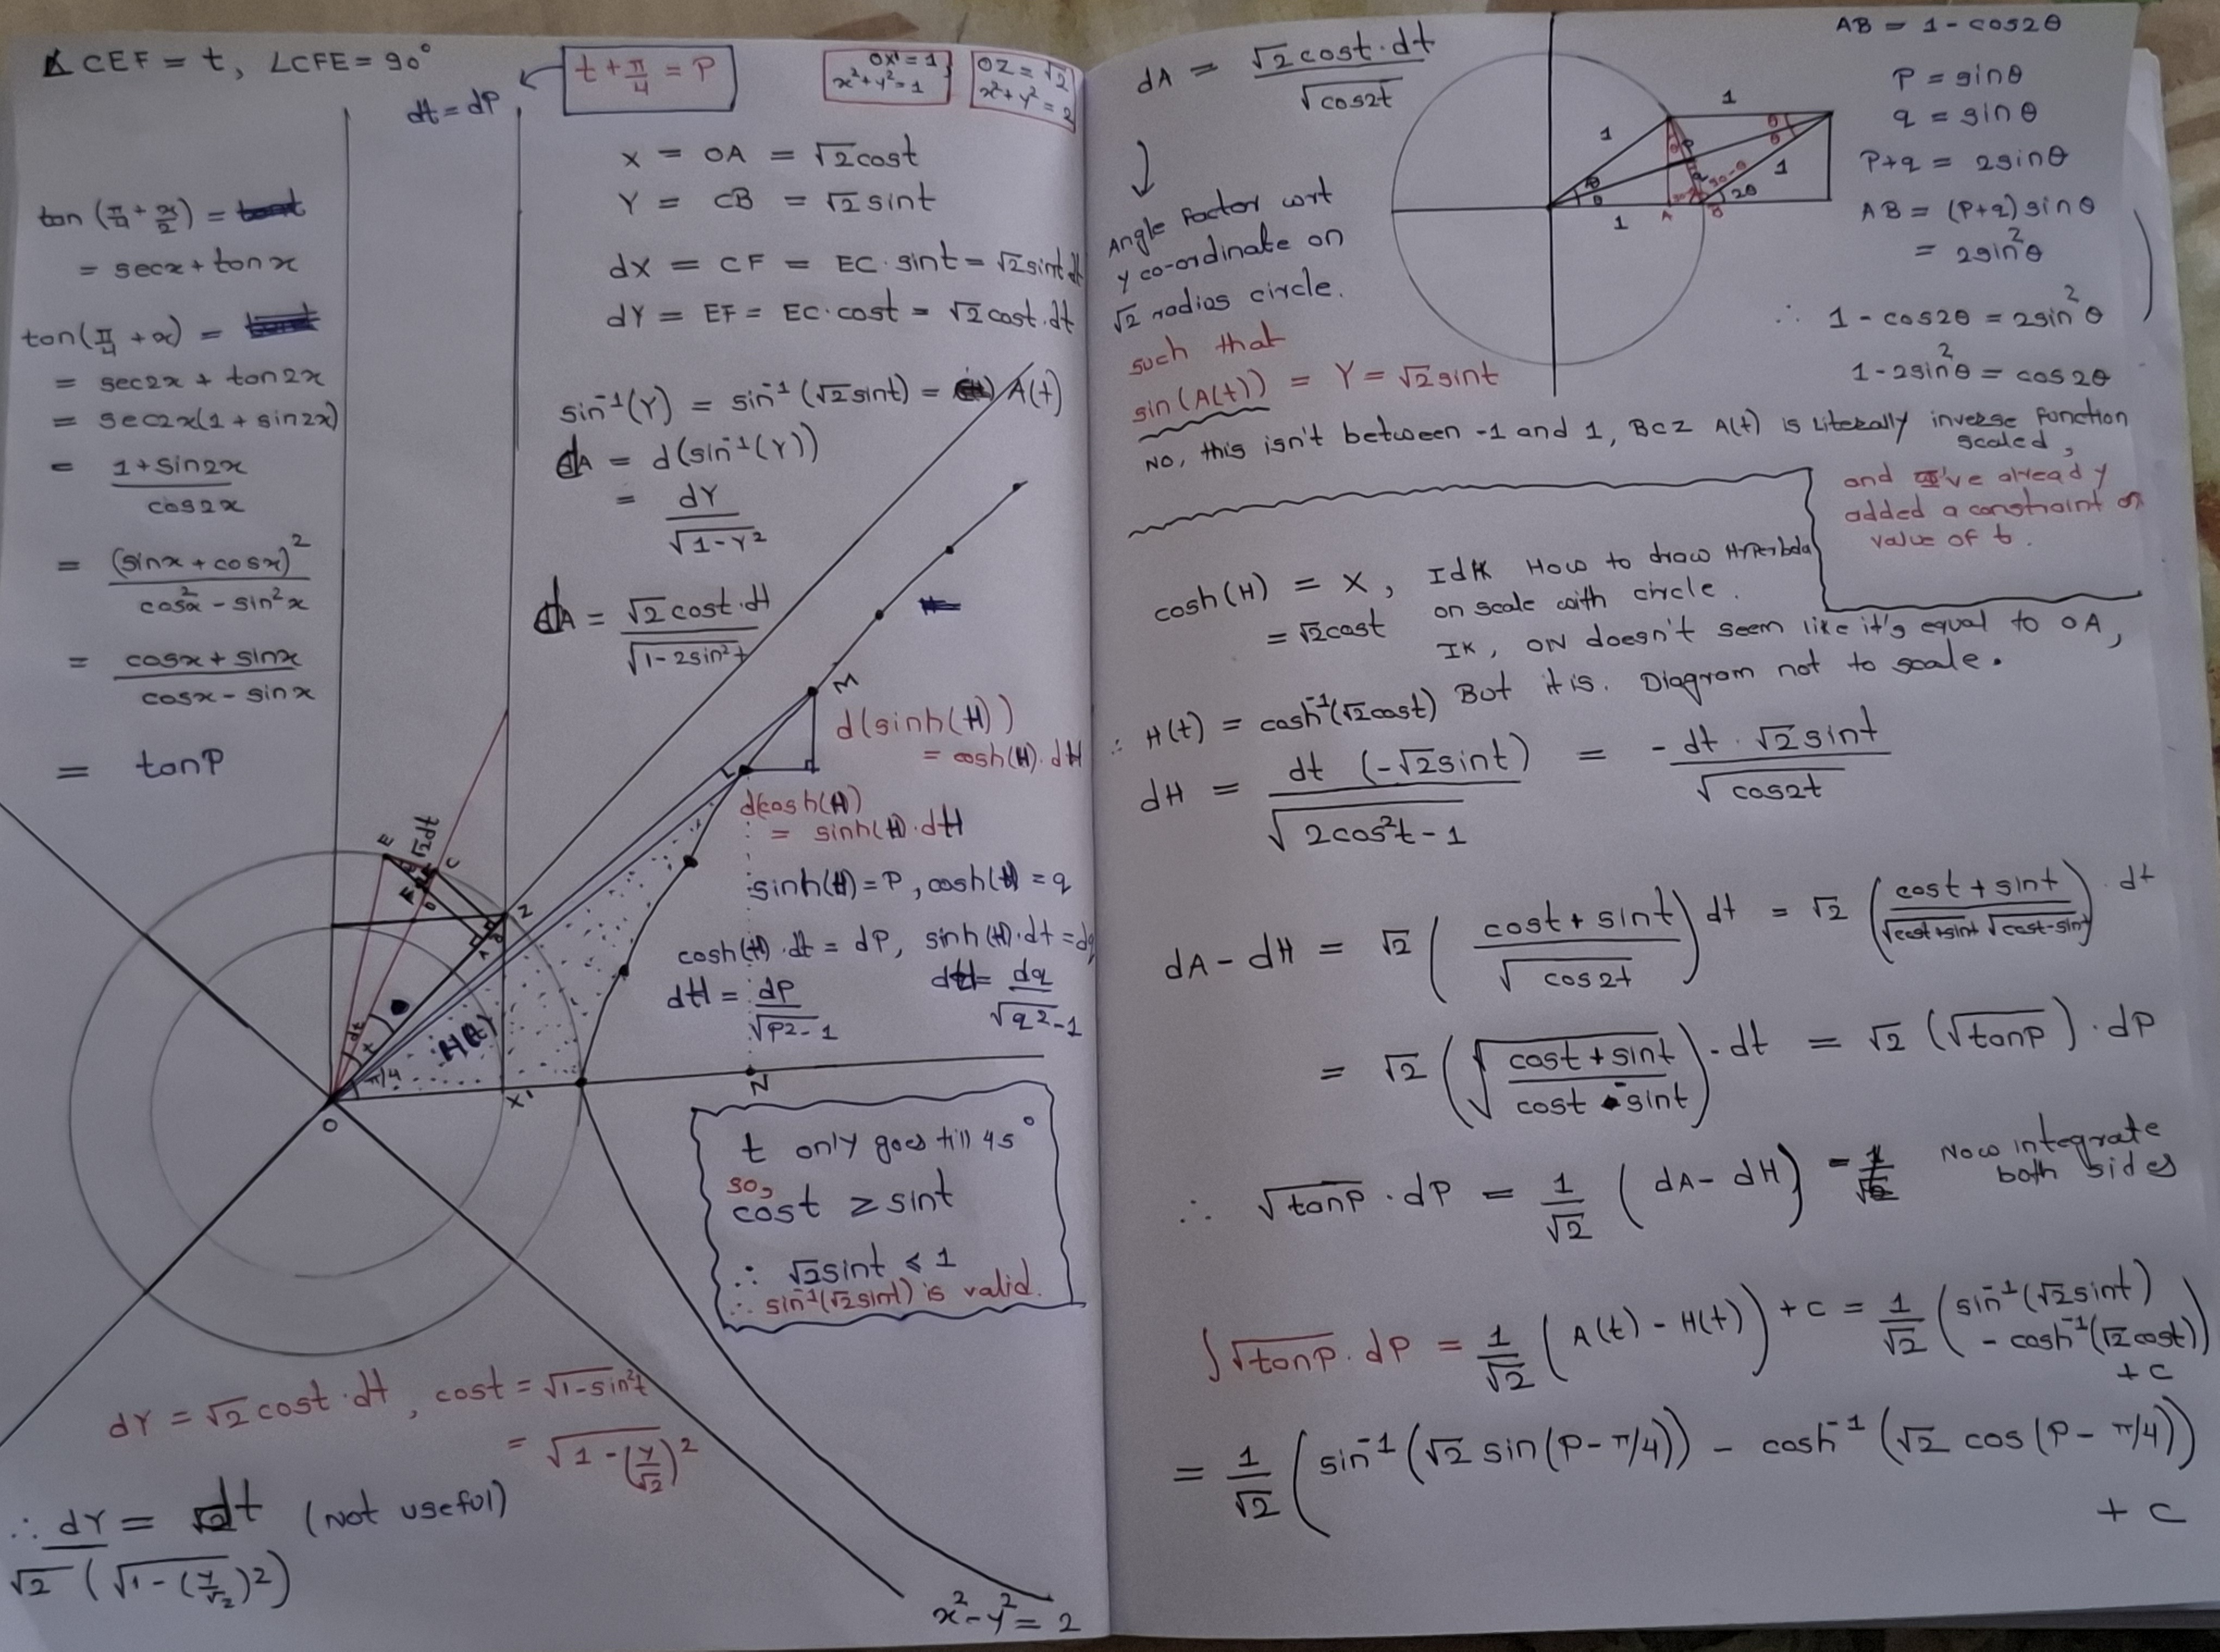 ∡CEF = t, ∠CFE = 90°
dt = dP
t + π/4 = P
OX' = 1
x² + y² = 1
OZ = √2
x² + y² = 2
X = OA = √2cost
Y = CB = √2sint
dX = CF = EC·sint = √2sint dt
dY = EF = EC·cost = √2cost·dt
tan(π/4 + x/2) =
= secx + tanx
tan(π/4 + x) =
= sec2x + tan2x
= sec2x(1 + sin2x)
= (1 + sin2x)/(cos2x)
= (sinx + cosx)²/(cos²x - sin²x)
= (cosx + sinx)/(cosx - sinx)
= tanP
sin⁻¹(Y) = sin⁻¹(√2sint) = A(t)
dA = d(sin⁻¹(Y))
= dY/√(1-Y²)
dA = √2cost·dt/√(1-2sin²t)
M
d(sinh(H))
= cosh(H)·dH
L
d(cosh(H)
= sinh(H)·dH
sinh(H) = P, cosh(H) = q
cosh(H)·dt = dP, sinh(H)·dt = dq
dH = dP/√(P²-1)
dH = dq/√(q²-1)
E
√2dt
C
F
D
Z
B
A
dt
t
π/4
H(t)
O
X'
N
t only goes till 45°
so,
cost ≥ sint
∴ √2sint ≤ 1
∴ sin⁻¹(√2sint) is valid.
dY = √2cost·dt, cost = √(1-sin²t)
= √(1-(Y/√2)²)
∴ dY/(√2(√(1-(Y/√2)²)) = dt (Not useful)
x² - y² = 2
dA = √2cost·dt/√cos2t
↓
Angle Factor wrt
y co-ordinate on
√2 radios circle.
such that
sin(A(t)) = Y = √2sint
No, this isn't between -1 and 1, Bcz A(t) is Literally inverse Function
scaled,
and we've already
added a constraint on
value of t.
1
1
θ
θ
P
θ
θ
q
90-θ
1
2θ
A
B
1
AB = 1 - cos2θ
P = sinθ
q = sinθ
P+q = 2sinθ
AB = (P+q)sinθ
= 2sin²θ
∴ 1 - cos2θ = 2sin²θ
1 - 2sin²θ = cos2θ
cosh(H) = X, Idk How to draw Hyperbola
= √2cost on scale with circle.
IK, ON doesn't seem like it's equal to OA,
But it is. Diagram not to scale.
∴ H(t) = cosh⁻¹(√2cost)
dH = dt (-√2sint)/√(2cos²t-1) = -dt·√2sint/√cos2t
dA - dH = √2((cost + sint)/√cos2t)dt = √2((cost + sint)/(√cost+sint √cost-sint))·dt
= √2(√((cost + sint)/(cost - sint)))·dt = √2(√tanP)·dP
∴ √tanP·dP = 1/√2 (dA - dH) Now integrate
both sides
∫√tanP·dP = 1/√2 (A(t) - H(t)) + c = 1/√2 (sin⁻¹(√2sint)
- cosh⁻¹(√2cost))
+ c
= 1/√2 (sin⁻¹(√2 sin(P - π/4)) - cosh⁻¹(√2 cos(P - π/4))
+ c